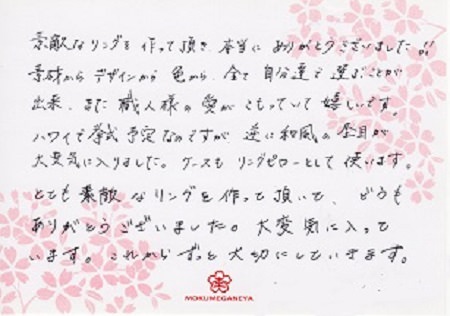 素敵なリングを作って頂き、本当にありがとうございました!!
素材からデザインから色から、全て自分達で選ぶことが
出来、また職人様の愛がこもっていて嬉しいです。
ハワイで挙式予定なのですが、逆に和風の木目が
大変気に入りました。ケースもリングピローとして使います。
とても素敵なリングを作って頂いて、どうも
ありがとうございました。大変気に入って
います。これからずっと大切にしていきます。
MOKUMEGANEYA